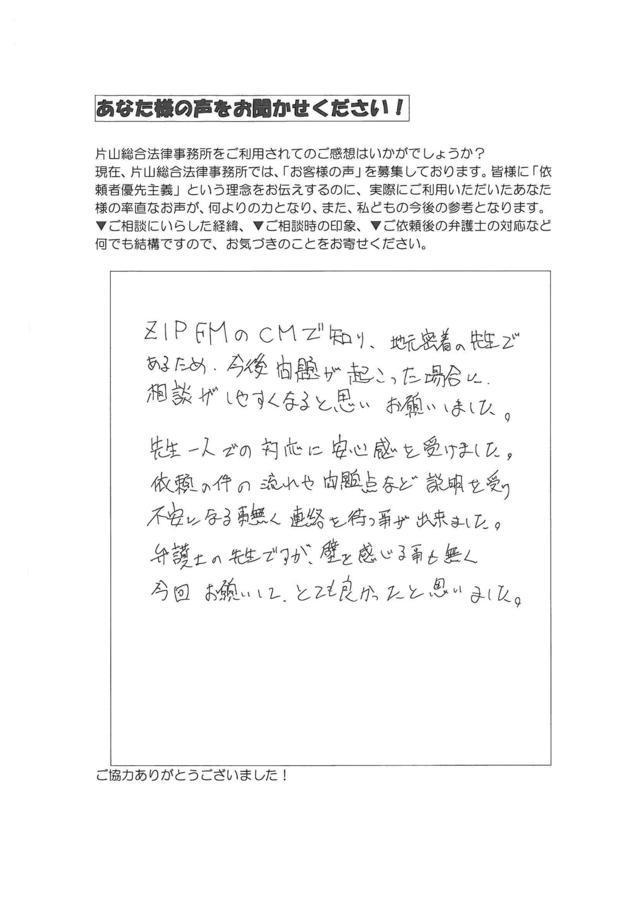 あなた様の声をお聞かせください！
片山総合法律事務所をご利用されてのご感想はいかがでしょうか？
現在、片山総合法律事務所では、「お客様の声」を募集しております。皆様に「依
頼者優先主義」という理念をお伝えするのに、実際にご利用いただいたあなた
様の率直なお声が、何よりの力となり、また、私どもの今後の参考となります。
▼ご相談にいらした経緯、▼ご相談時の印象、▼ご依頼後の弁護士の対応など
何でも結構ですので、お気づきのことをお寄せください。
ZIP FMのCMで知り、地元密着の先生で
あるため、今後問題が起こった場合に
相談がしやすくなると思いお願いしました。
先生一人での対応に安心感を受けました。
依頼の件の流れや問題点など説明を受け
不安になる事無く連絡を待つ事が出来ました。
弁護士の先生ですが、壁を感じる事も無く
今回お願いして、とても良かったと思いました。
ご協力ありがとうございました！